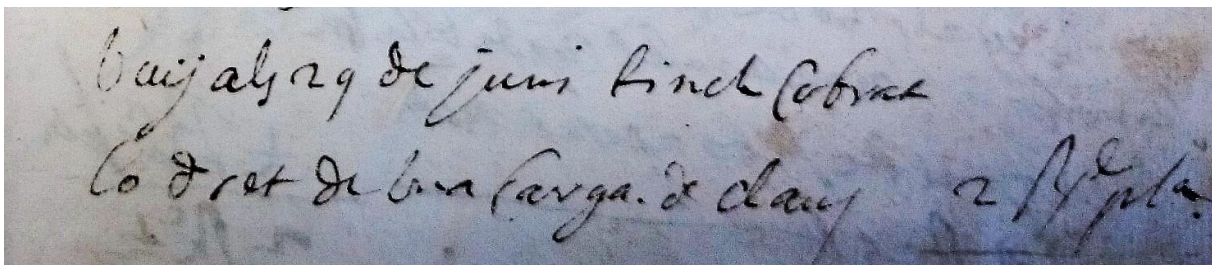 buij als 29 de juni tinch Cobrat
Lo dret de bna Carga. de claus 2 Rs de pla